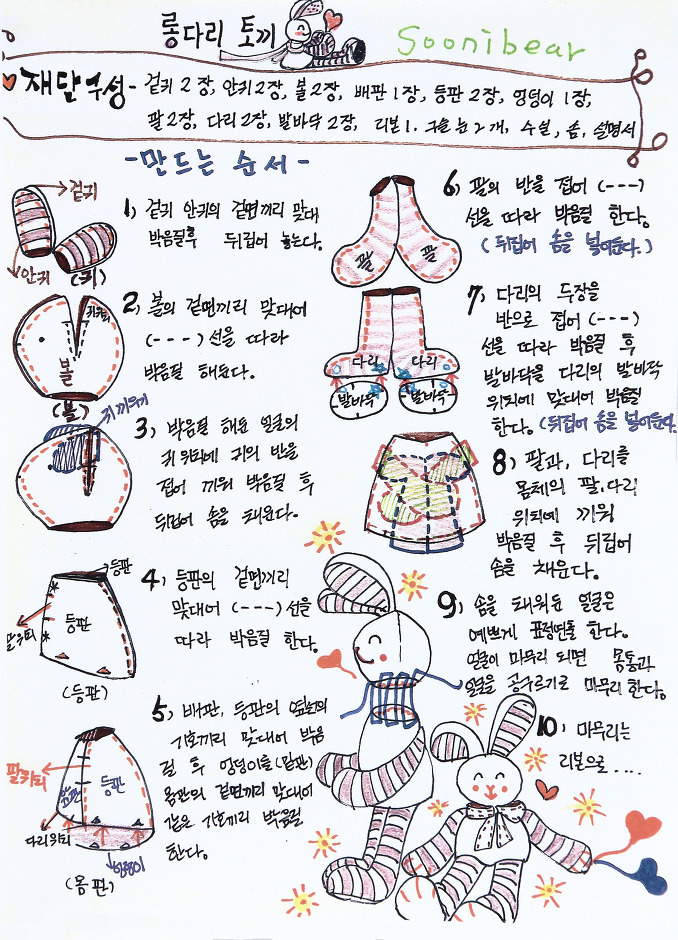 롱다리 토끼
Soonibear
재단구성 - 겉귀 2장, 안귀 2장, 볼 2장, 배판 1장, 등판 2장, 엉덩이 1장,
팔 2장, 다리 2장, 발바닥 2장, 리본 1. 구슬눈 2개, 수실, 솜, 설명서
- 만드는 순서 -
겉귀
안귀
(귀)
1) 겉귀 안귀의 겉면끼리 맞대
박음질후 뒤집어 놓는다.
귀위치
볼
(볼)
2) 볼의 겉면끼리 맞대어
(---)선을 따라
박음질 해둔다.
귀끼우기
3) 박음질 해둔 얼굴의
귀 위치에 귀의 반을
접어 끼워 박음질 후
뒤집어 솜을 채운다.
등판
팔위치
등판
(등판)
4) 등판의 겉면끼리
맞대어 (---)선을
따라 박음질 한다.
팔위치
등판
다리위치
엉덩이
(몸판)
5) 배판, 등판의 옆선의
기호끼리 맞대어 박음
질 후 엉덩이를(밑판)
몸판의 겉면끼리 맞대어
같은 기호끼리 박음질
한다.
팔 팔
6) 팔의 반을 접어 (---)
선을 따라 박음질 한다.
(뒤집어 솜을 넣어둔다.)
다리 다리
발바닥 발바닥
7) 다리의 두장을
반으로 접어 (---)
선을 따라 박음질 후
발바닥을 다리의 발바닥
위치에 맞대어 박음질
한다. (뒤집어 솜을 넣어둔다.
8) 팔과, 다리를
몸체의 팔.다리
위치에 끼워
박음질 후 뒤집어
솜을 채운다.
9) 솜을 채워둔 얼굴은
예쁘게 표정연출 한다.
얼굴이 마무리 되면 몸통과
얼굴을 공구르기로 마무리 한다.
10) 마무리는
리본으로....